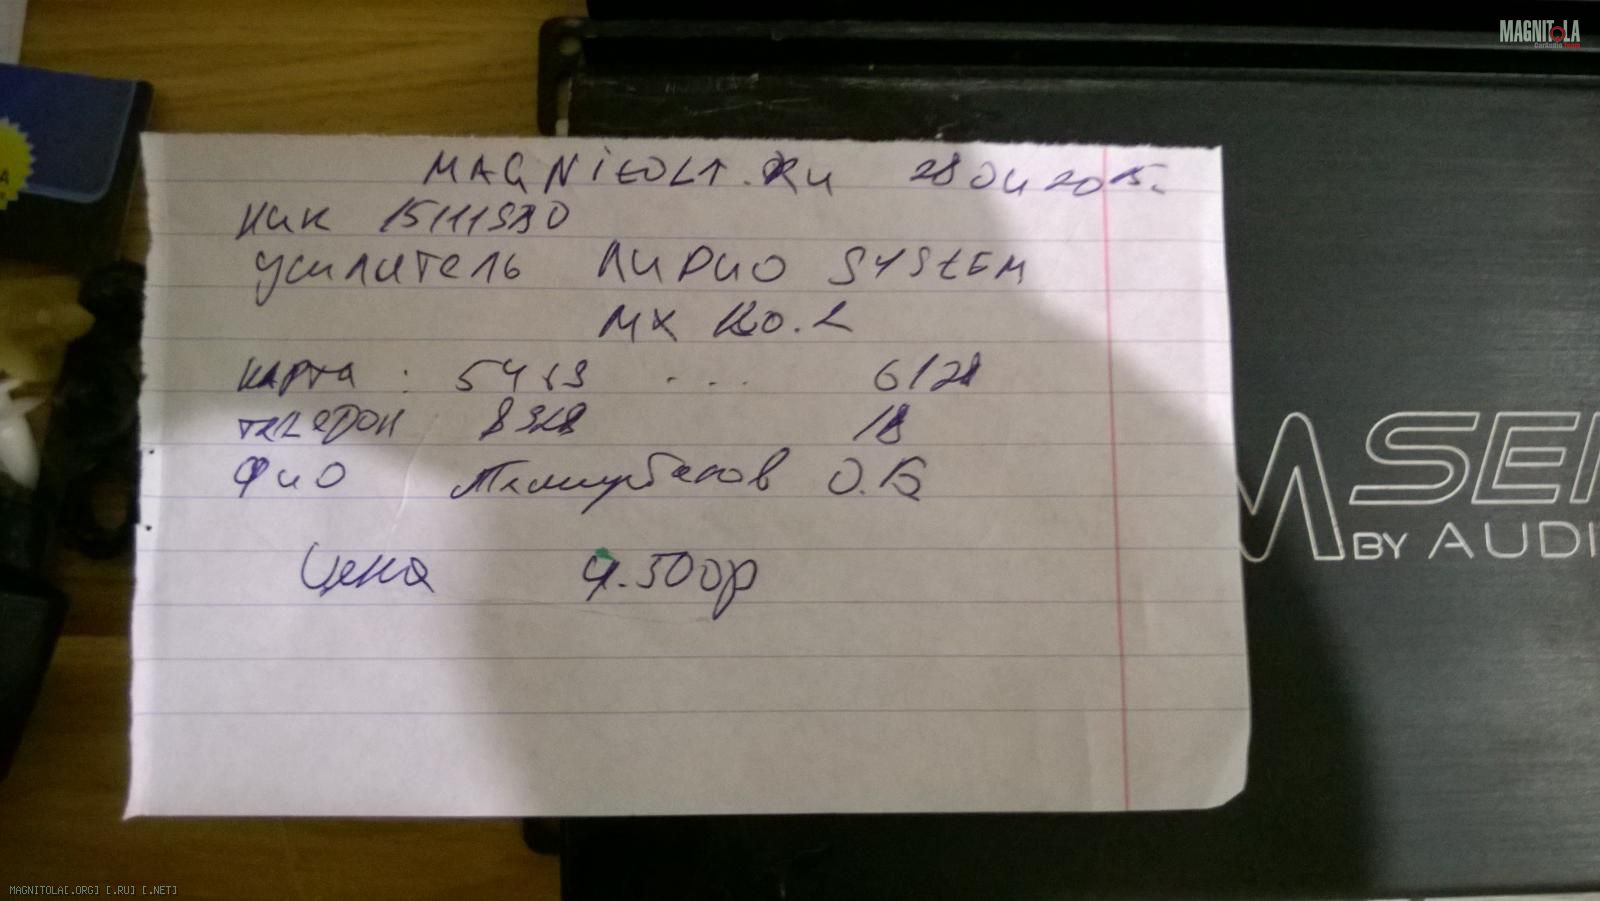 MAGNITOLA
CarAudio Team
MAGNitOLA.RU 28 04 2015г.
НИК 15111980
усилитель АУДИО SYSTEM
MX 120.2
КАРТА : 5469 .... 6121
телефон 8928 18
ФИО О.Б
Цена 4.500р
M SE
BY AUDI
MAGNITOLA[.ORG] [.RU] [.NET]